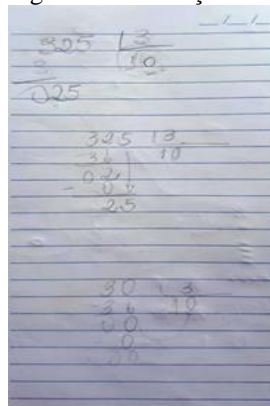 325 3
3 10
025
325 3
3 10
02
- 0
25
30 3
3 10
00
0
00